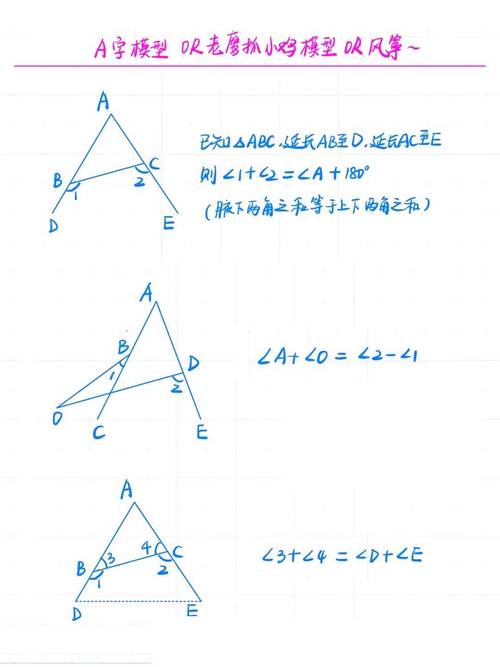 A字模型 OR 老鹰抓小鸡模型 OR 风筝~
A
B
C
1
2
D
E
已知△ABC,延长AB至D,延长AC至E
则∠1+∠2=∠A+180°
(腋下两角之和等于上下两角之和)
A
B
D
1
2
O
C
E
∠A+∠O=∠2-∠1
A
B
3
4
C
1
2
D
E
∠3+∠4=∠D+∠E